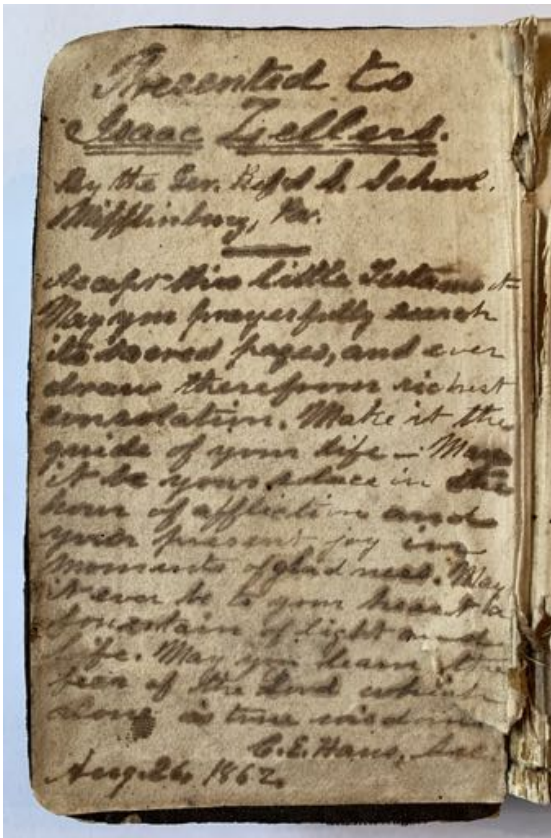 Presented to
Isaac Zellers.
By the Ger. Ref'd S. School.
Mifflinburg, Pa.
Accept this little Testament
May you prayerfully search
its sacred pages, and ever
draw therefrom richest
consolation. Make it the
guide of your life – May
it be your solace in the
hour of affliction and
your present joy in
moments of gladness. May
it ever be to your heart a
fountain of light and
life. May you learn the
fear of the Lord which
alone is true wisdom
C. E. Haus, Sec
Aug. 26, 1862.